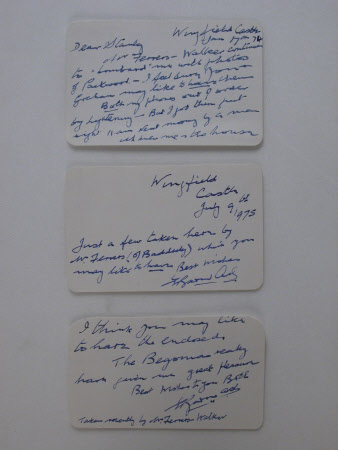 Wingfield Castle
Jan 17th 74
Dear Stanley
Mr Ferrers-Walker continues
to "bombard" me with photos
of Packwood - I feel sure you
may like to have them
Both my phones out of order
by lightening - But I got them put
right by a man
the house
Wingfield
Castle
July 9th
1975
Just a few taken here by
Mr Ferrers (of Baddesley) which you
may like to have Best wishes
I think you may like
to have the enclosed
The Begonias really
have given me great pleasure
Best Wishes to you Both
Taken recently by Mr Ferrers Walker